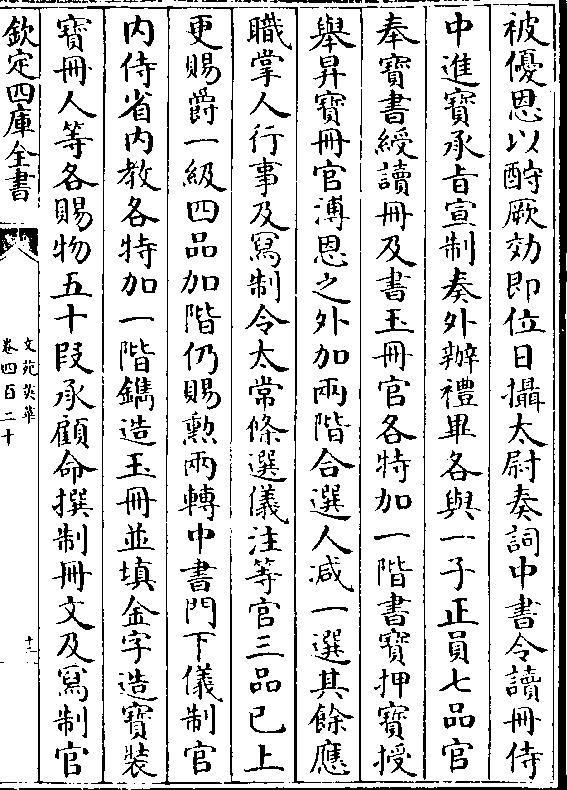 被優恩以酧厥効即位日攝太尉奏詞中書令讀冊侍
中進寳承㫖宣制奏外辦禮畢各與一子正員七品官
奉寳書綬讀冊及書玉冊官各特加一階書寳押寳授
舉昇寳冊官溥恩之外加兩階合選人减一選其餘應
職掌人行事及寫制令太常條選儀注等官三品已上
更賜爵一級四品加階仍賜勲兩轉中書門下儀制官
内侍省内教各特加一階鐫造玉冊並填金字造寳裝
寳冊人等各賜物五十叚承顧命撰制冊文及寫制官
欽定四庫全書
文苑英華
卷四百二十
十二